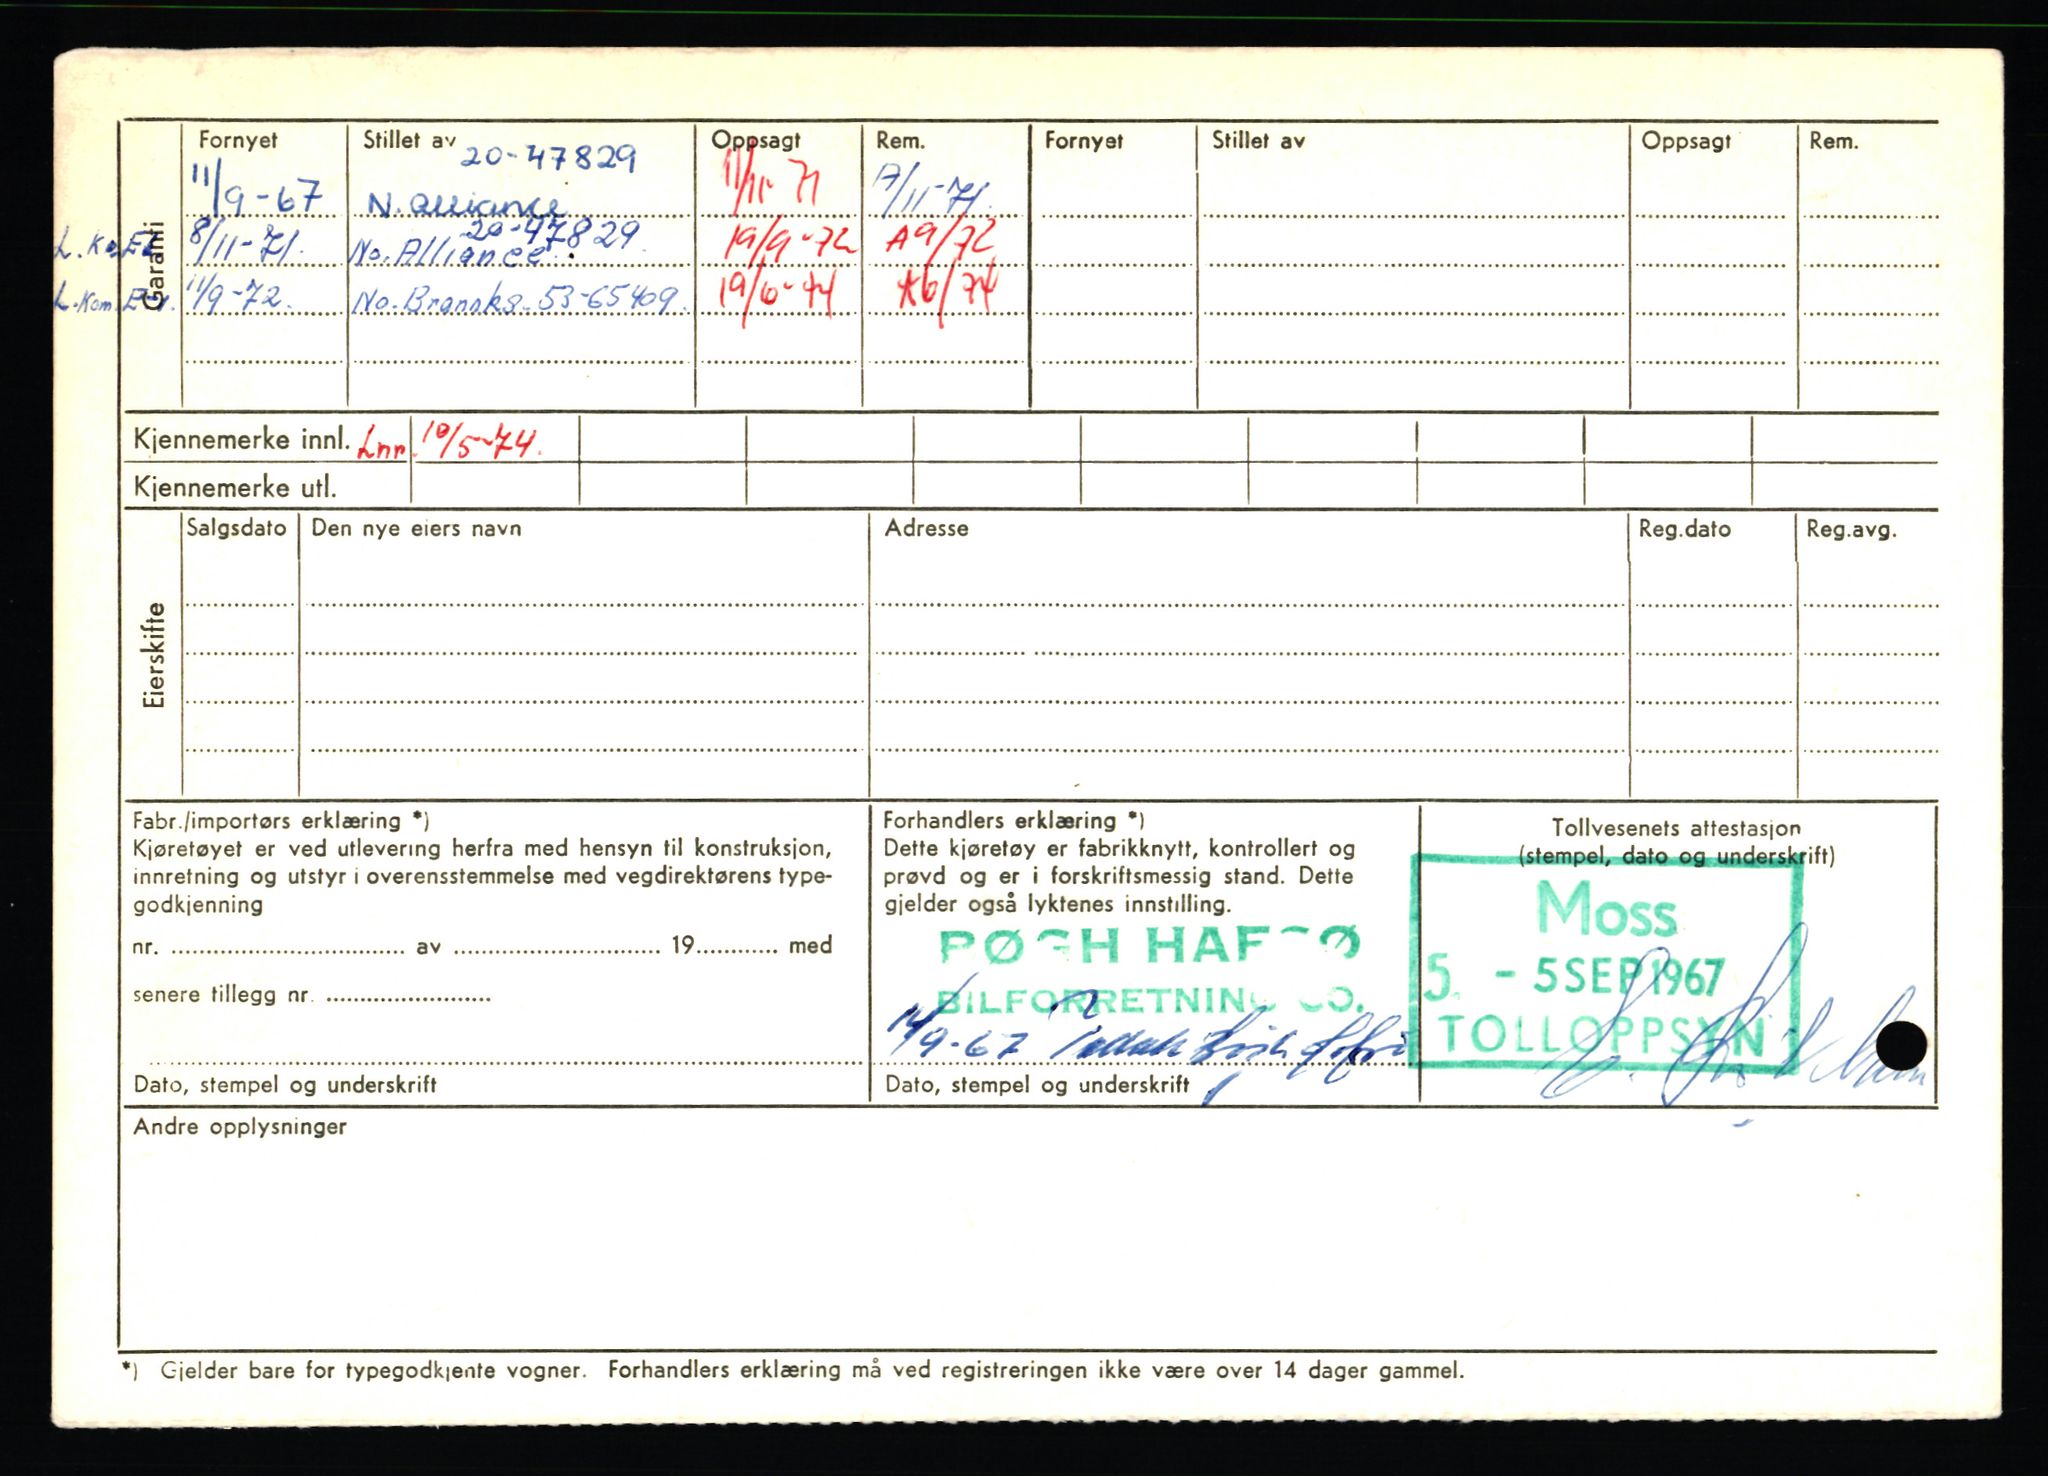 Garanti
Fornyet Stillet av Oppsagt Rem. Fornyet Stillet av Oppsagt Rem.
20-47829
11/9-67 N. Alliance 11/11-71 A/11-71.
20-47829.
8/11-71. No. Alliance. 19/9-72 A9/72
L. Kom. 11/9-72. No. Brannks. 53-65409. 19/6-74 A6/74
Kjennemerke innl. Lnr. 10/5-74.
Kjennemerke utl.
Eierskifte
Salgsdato Den nye eiers navn Adresse Reg.dato Reg.avg.
Fabr./importørs erklæring *)
Kjøretøyet er ved utlevering herfra med hensyn til konstruksjon,
innretning og utstyr i overensstemmelse med vegdirektørens type-
godkjenning
nr. av 19 med
senere tillegg nr.
Dato, stempel og underskrift
Forhandlers erklæring *)
Dette kjøretøy er fabrikknytt, kontrollert og
prøvd og er i forskriftsmessig stand. Dette
gjelder også lyktenes innstilling.
BILFORRETNING CO.
14/9-67
Dato, stempel og underskrift
Tollvesenets attestasjon
(stempel, dato og underskrift)
Moss
5. - 5 SEP 1967
TOLLOPPSYN
Andre opplysninger
*) Gjelder bare for typegodkjente vogner. Forhandlers erklæring må ved registreringen ikke være over 14 dager gammel.